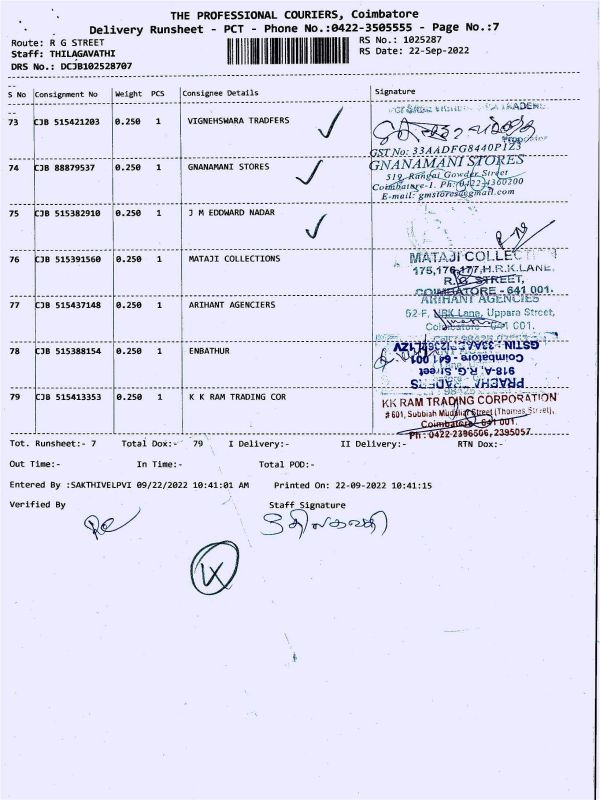 THE PROFESSIONAL COURIERS, Coimbatore
Delivery Runsheet - PCT - Phone No.:0422-3505555 - Page No.:7
Route: R G STREET RS No.: 1025287
Staff: THILAGAVATHI RS Date: 22-Sep-2022
DRS No.: DCJB102528707
S No Consignment No Weight PCS Consignee Details Signature
73 CJB 515421203 0.250 1 VIGNEHSWARA TRADFERS
GST No: 33AADFG8440P1Z3
74 CJB 88879537 0.250 1 GNANAMANI STORES
GNANAMANI STORES
519, Rangai Gowder Street
Coimbatore-1. Ph: 0422-4360200
E-mail: gmstores@gmail.com
75 CJB 515382910 0.250 1 J M EDDWARD NADAR
76 CJB 515391560 0.250 1 MATAJI COLLECTIONS
MATAJI COLLECT
175,176,177,H.R.K.LANE,
R.G STREET,
COIMBATORE - 641 001.
77 CJB 515437148 0.250 1 ARIHANT AGENCIERS
ARIHANT AGENCIES
52-F, NRK Lane, Uppara Street,
Coimbatore - 641 001.
78 CJB 515388154 0.250 1 ENBATHUR
Coimbatore - 641 001
918-A, R.G. Street
PRABHA TRADERS
79 CJB 515413353 0.250 1 K K RAM TRADING COR
KK RAM TRADING CORPORATION
# 601, Subbiah Mudaliar Street (Thomas Street),
Coimbatore - 641 001.
Ph : 0422-2396506, 2395057
Tot. Runsheet:- 7 Total Dox:- 79 I Delivery:- II Delivery:- RTN Dox:-
Out Time:- In Time:- Total POD:-
Entered By :SAKTHIVELPVI 09/22/2022 10:41:01 AM Printed On: 22-09-2022 10:41:15
Verified By Staff Signature
திலகவதி